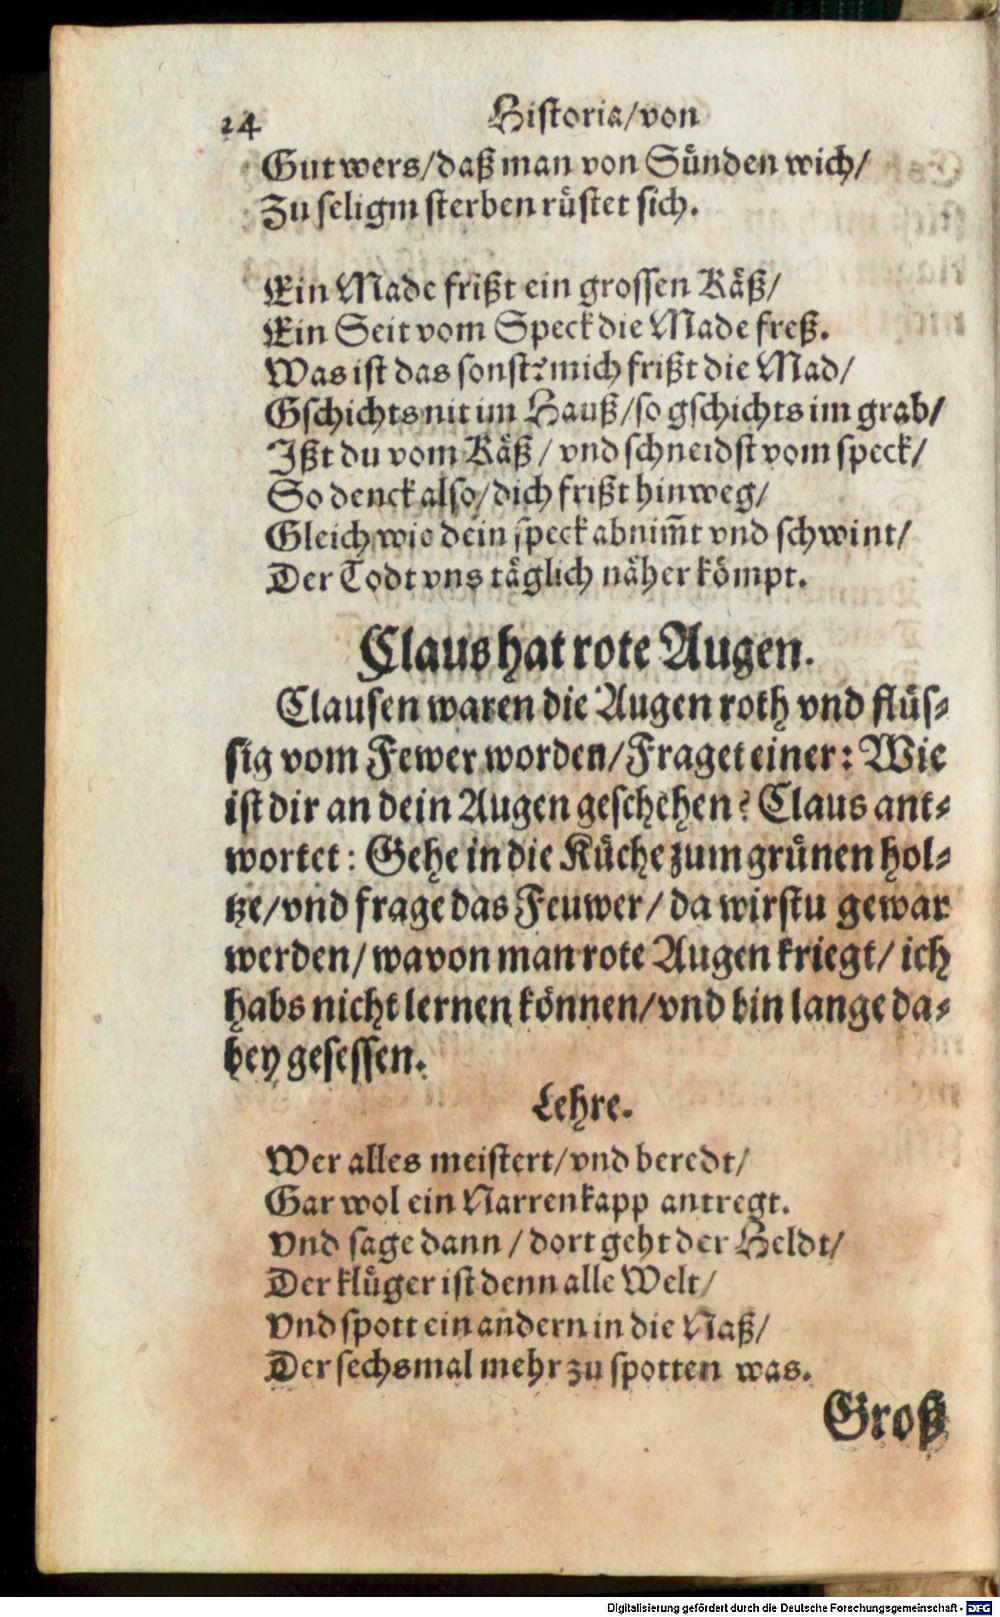 24 Historia/von
Gut wers/daß man von Sünden wich/
Zu seligm sterben rüstet sich.
Ein Made frißt ein grossen Käß/
Ein Seit vom Speck die Made freß.
Was ist das sonst? mich frißt die Mad/
Gschichts nit im Hauß/so gschichts im grab/
Ißt du vom Käß/ vnd schneidst vom speck/
So denck also/dich frißt hinweg/
Gleich wie dein speck abnim̃t vnd schwint/
Der Todt vns täglich näher kömpt.
Claus hat rote Augen.
Clausen waren die Augen roth vnd flüs-
sig vom Fewer worden/Fraget einer: Wie
ist dir an dein Augen geschehen? Claus ant-
wortet: Gehe in die Küche zum grünen hol-
tze/vnd frage das Feuwer/ da wirstu gewar
werden/wavon man rote Augen kriegt/ ich
habs nicht lernen können/vnd bin lange da-
bey gesessen.
Lehre.
Wer alles meistert/vnd beredt/
Gar wol ein Narrenkapp antregt.
Vnd sage dann/dort geht der Heldt/
Der klüger ist denn alle Welt/
Vnd spott ein andern in die Naß/
Der sechsmal mehr zu spotten was.
Groß
Digitalisierung gefördert durch die Deutsche Forschungsgemeinschaft - DFG